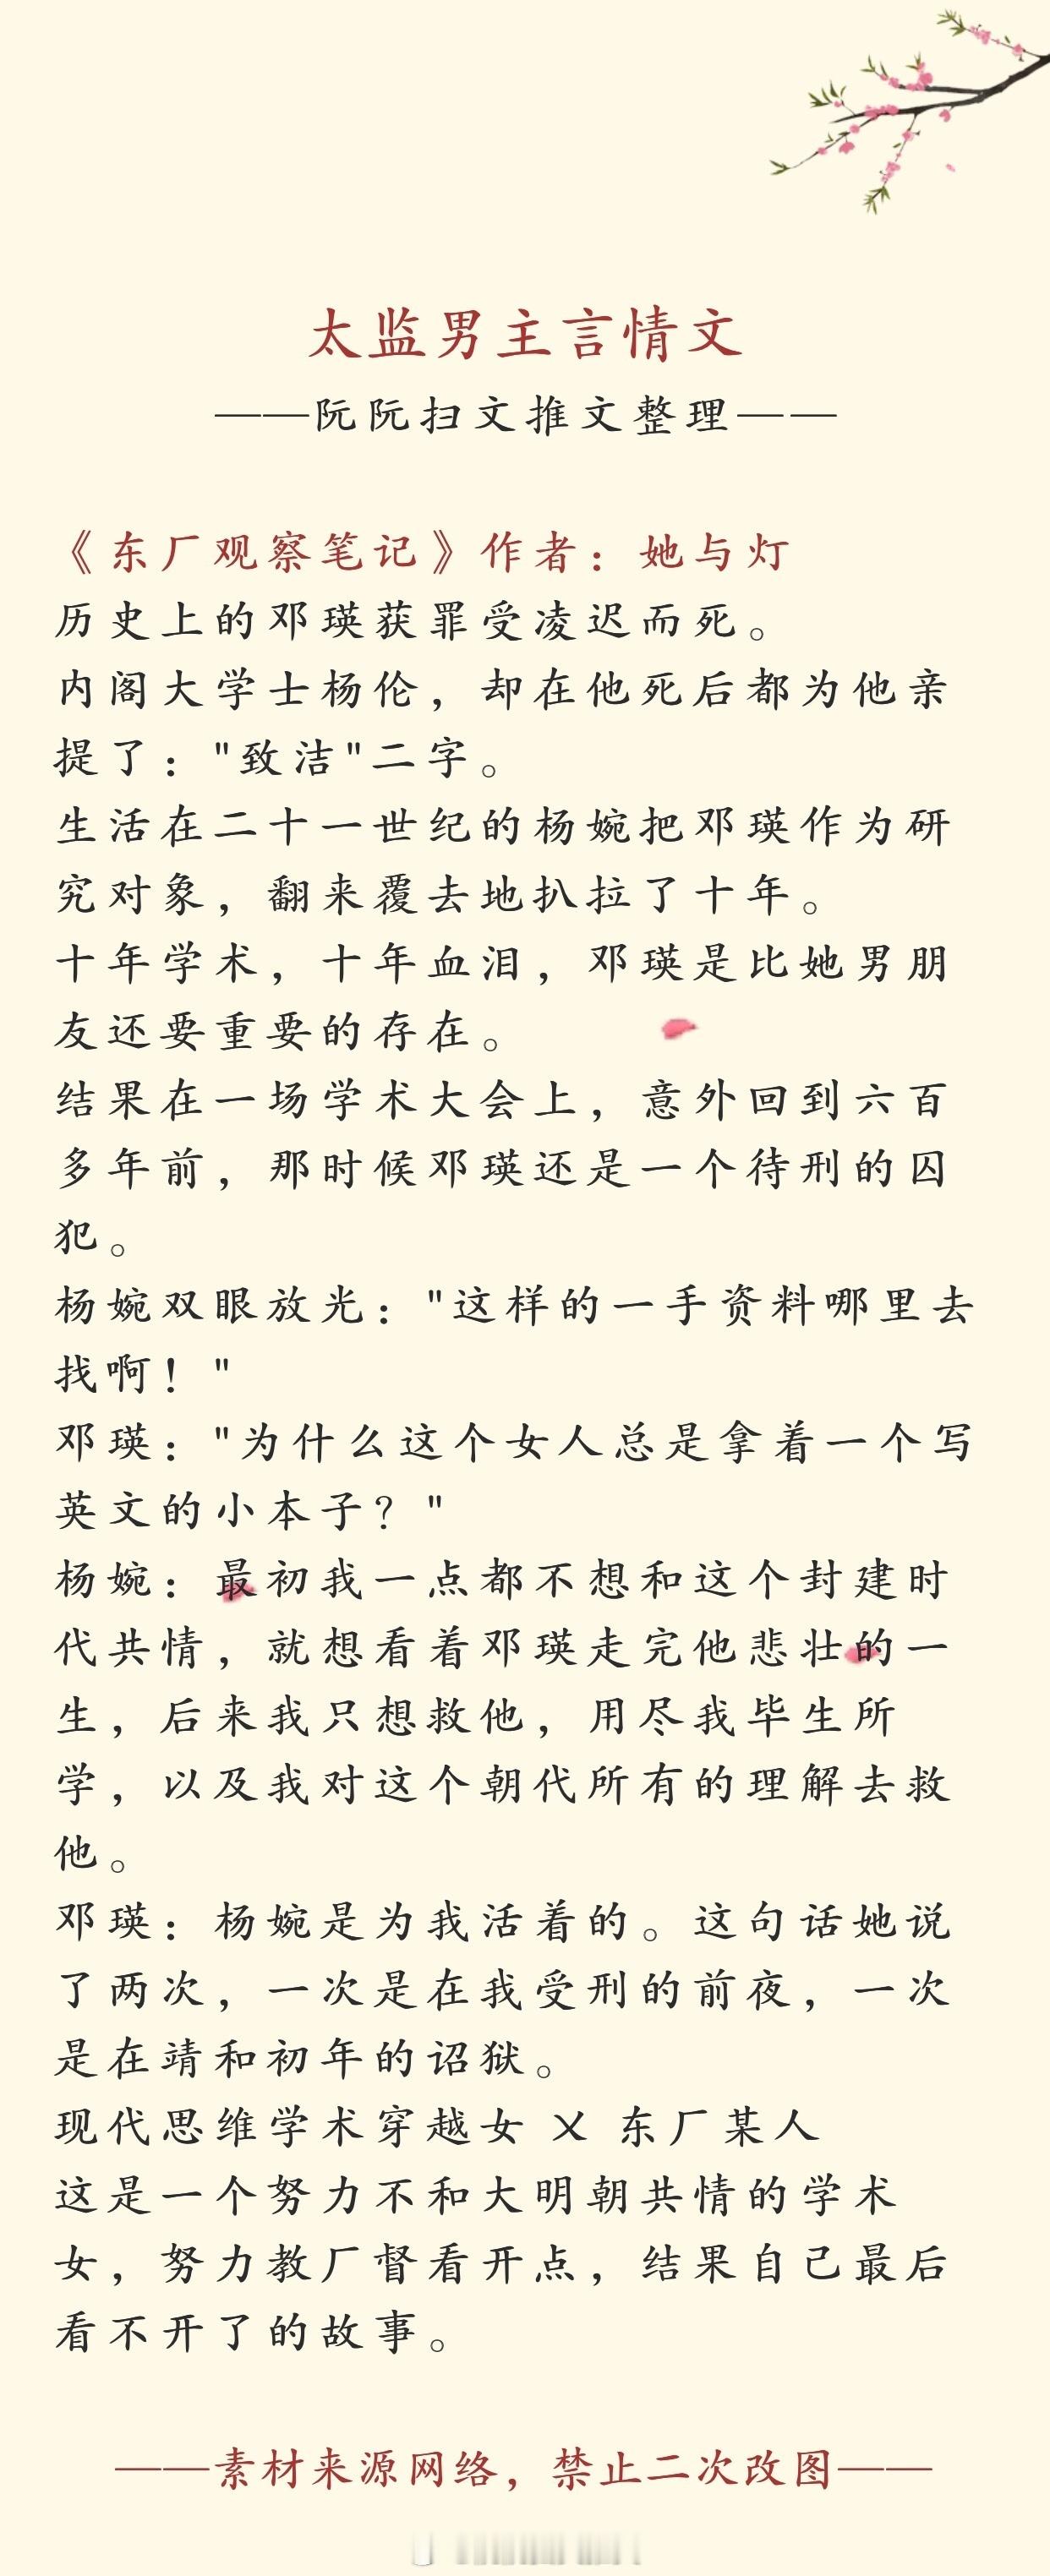 太监男主言情文
——阮阮扫文推文整理——
《东厂观察笔记》作者：她与灯
历史上的邓瑛获罪受凌迟而死。
内阁大学士杨伦，却在他死后都为他亲
提了："致洁"二字。
生活在二十一世纪的杨婉把邓瑛作为研
究对象，翻来覆去地扒拉了十年。
十年学术，十年血泪，邓瑛是比她男朋
友还要重要的存在。
结果在一场学术大会上，意外回到六百
多年前，那时候邓瑛还是一个待刑的囚
犯。
杨婉双眼放光："这样的一手资料哪里去
找啊！"
邓瑛："为什么这个女人总是拿着一个写
英文的小本子？"
杨婉：最初我一点都不想和这个封建时
代共情，就想看着邓瑛走完他悲壮的一
生，后来我只想救他，用尽我毕生所
学，以及我对这个朝代所有的理解去救
他。
邓瑛：杨婉是为我活着的。这句话她说
了两次，一次是在我受刑的前夜，一次
是在靖和初年的诏狱。
现代思维学术穿越女 㐅 东厂某人
这是一个努力不和大明朝共情的学术
女，努力教厂督看开点，结果自己最后
看不开了的故事。
——素材来源网络，禁止二次改图——